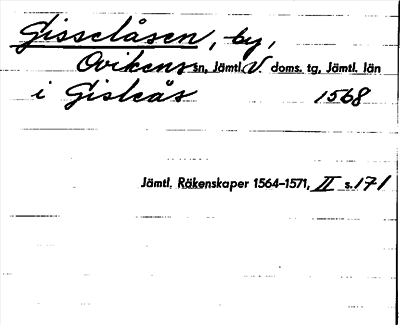 Gisselåsen, by,
Ovikens sn, Jämtl. V. doms. tg, Jämtl. län
i Gisleås 1568
Jämtl. Räkenskaper 1564–1571, II s. 171